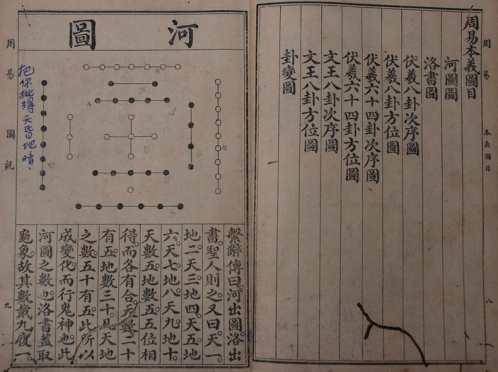 周易本義圖目
河圖圖
洛書圖
伏羲八卦次序圖
伏羲八卦方位圖
伏羲六十四卦次序圖
伏羲六十四卦方位圖
文王八卦次序圖
文王八卦方位圖
卦變圖
本義圖目
八
河圖
繫辭傳曰河出圖洛出
書聖人則之又曰天一
地二天三地四天五地
六天七地八天九地十
天數五地數五五位相
得而各有合天數二十
有五地數三十凡天地
之數五十有五此所以
成變化而行鬼神也此
河圖之數也洛書蓋取
龜象故其數戴九履一
周易
圖說
九